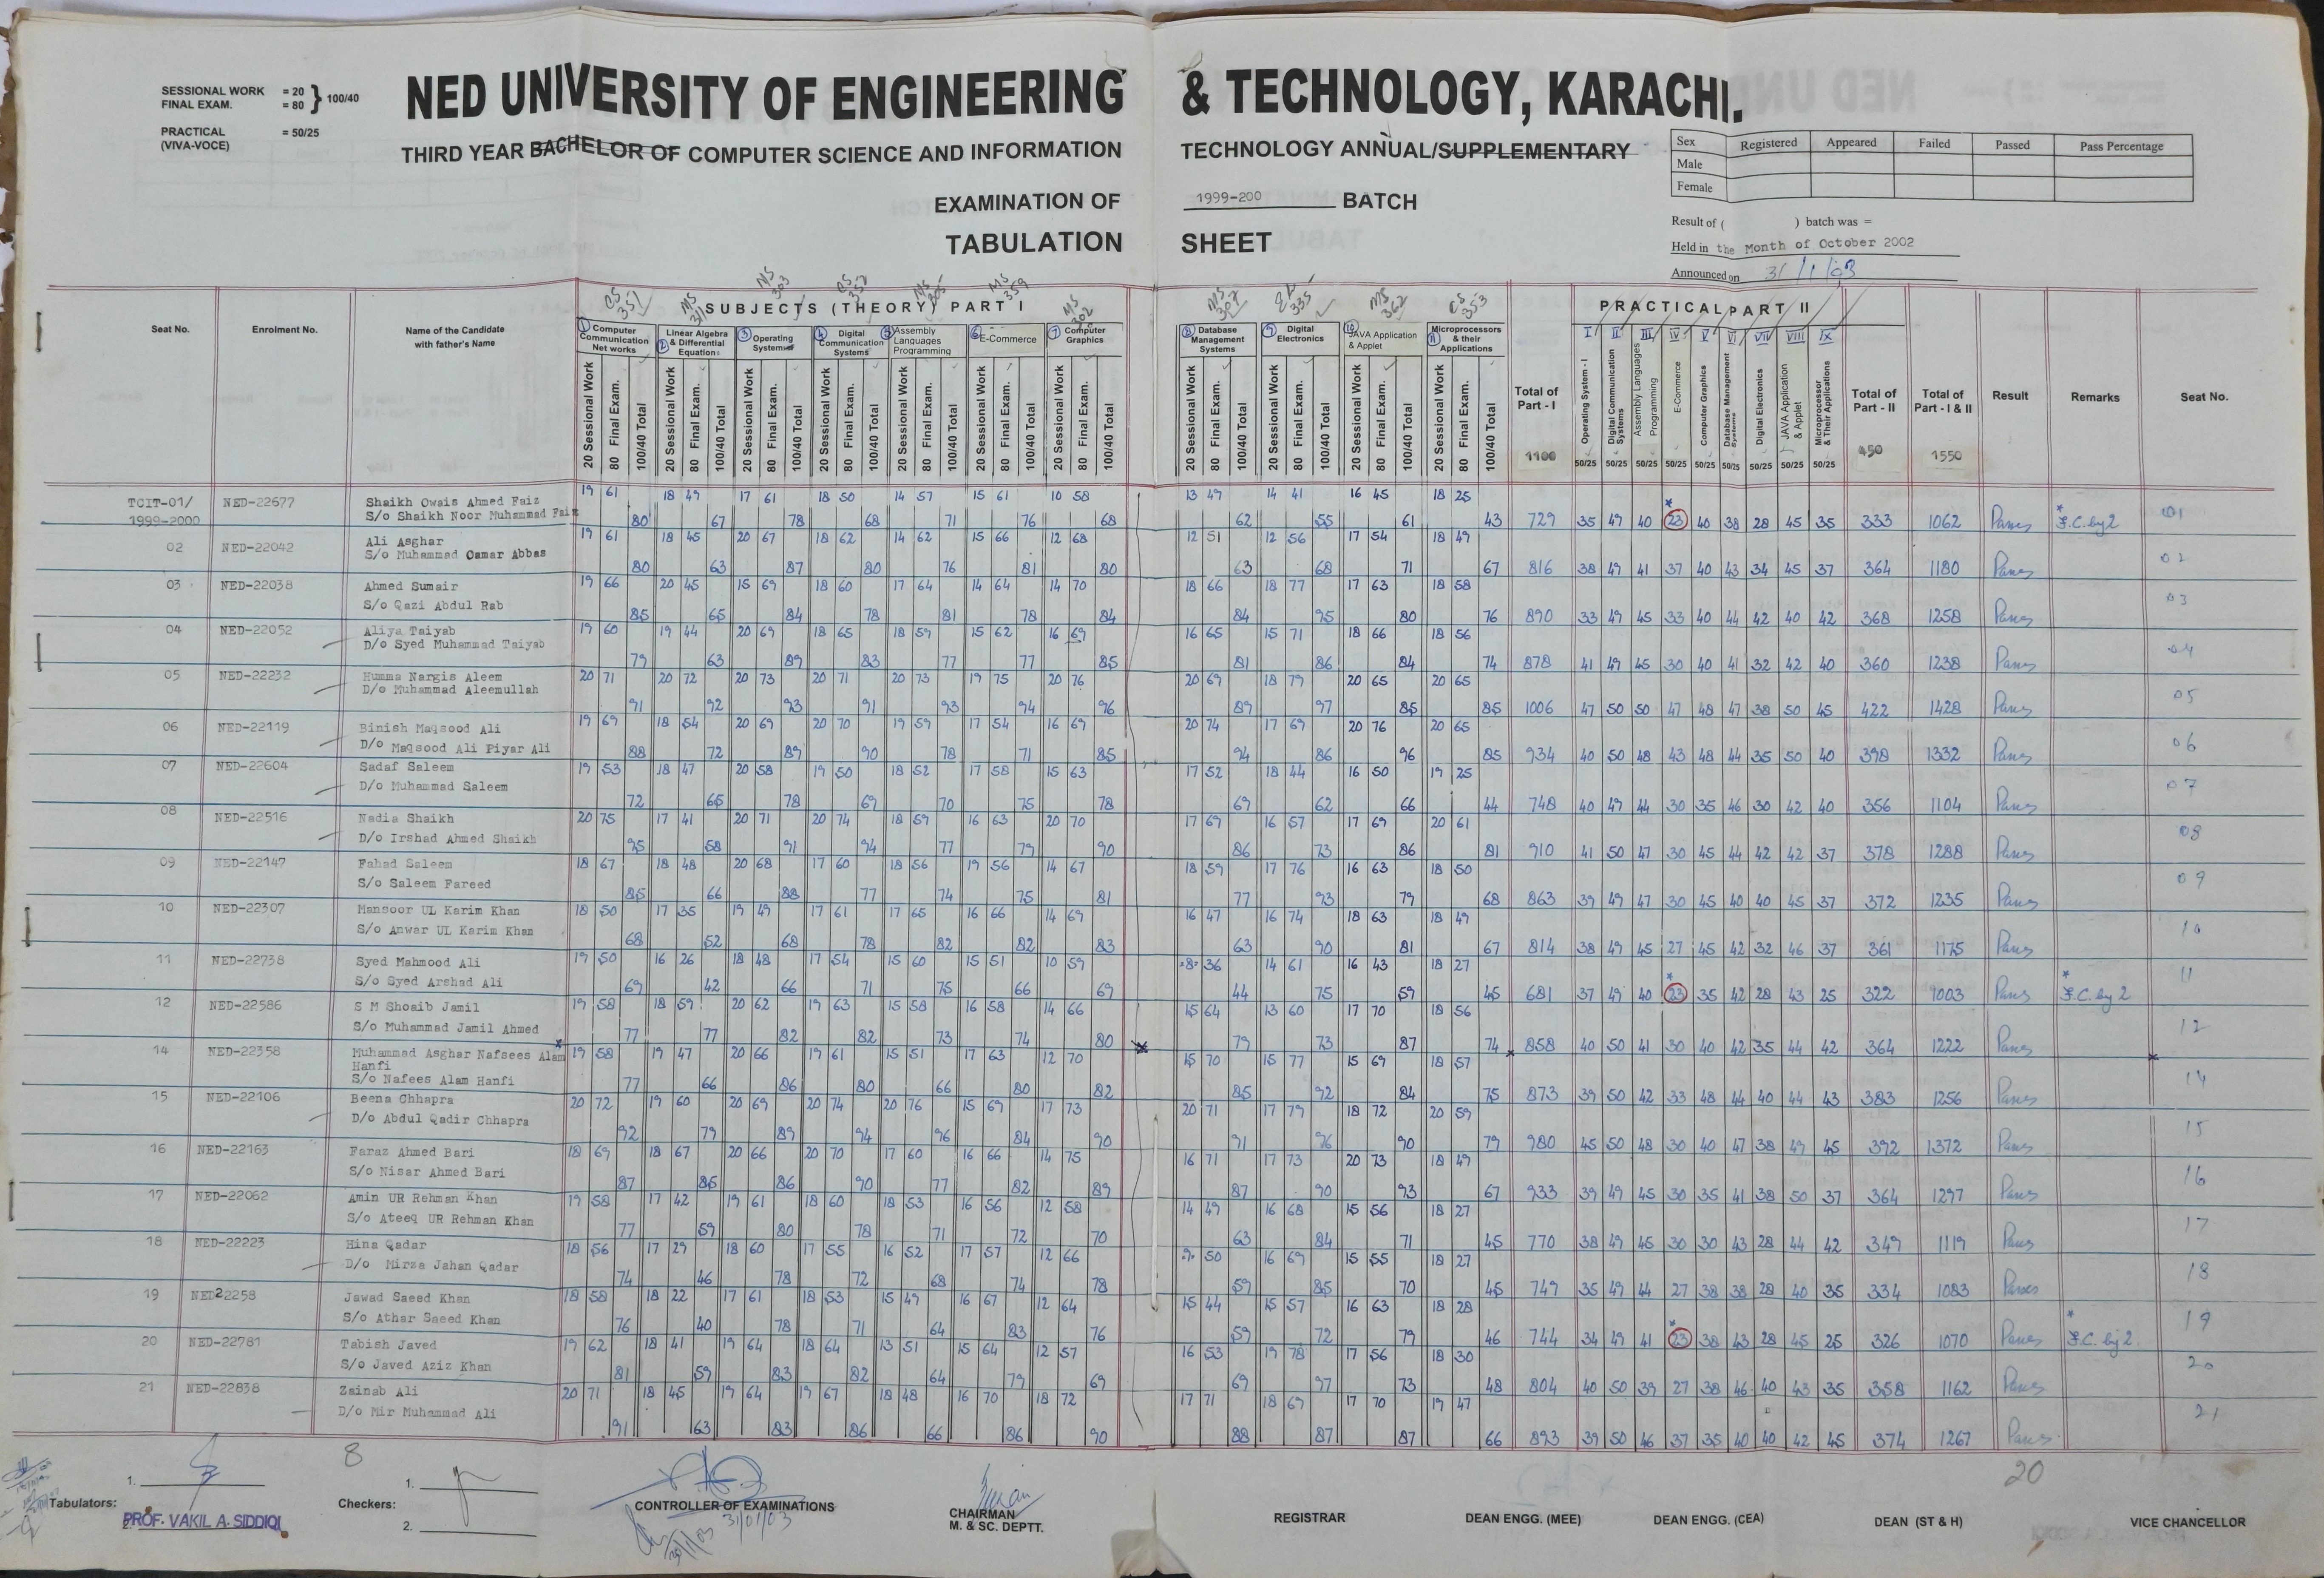 SESSIONAL WORK = 20
FINAL EXAM. = 80 } 100/40
PRACTICAL = 50/25
(VIVA-VOCE)
NED UNIVERSITY OF ENGINEERING & TECHNOLOGY, KARACHI.
THIRD YEAR BACHELOR OF COMPUTER SCIENCE AND INFORMATION TECHNOLOGY ANNUAL/SUPPLEMENTARY
EXAMINATION OF 1999-200 BATCH
TABULATION SHEET
Sex Registered Appeared Failed Passed Pass Percentage
Male
Female
Result of ( ) batch was =
Held in the Month of October 2002
Announced on 31/1/03
CS 351 MS 311 MS 303 CS 352 MS 305 MS 359 MS 302 MS 307 EL 335 MS 362 CS 353
SUBJECTS (THEORY) PART I
PRACTICAL PART II
Seat No. Enrolment No. Name of the Candidate with father's Name
1 Computer Communication Net works
2 Linear Algebra & Differential Equations
3 Operating Systems
4 Digital Communication Systems
5 Assembly Languages Programming
6 E-Commerce
7 Computer Graphics
8 Database Management Systems
9 Digital Electronics
10 JAVA Application & Applet
11 Microprocessors & their Applications
20 Sessional Work 80 Final Exam. 100/40 Total
Total of Part - I 1100
I Operating System - I 50/25
II Digital Communication Systems 50/25
III Assembly Languages Programming 50/25
IV E-Commerce 50/25
V Computer Graphics 50/25
VI Database Management Systems 50/25
VII Digital Electronics 50/25
VIII JAVA Application & Applet 50/25
IX Microprocessor & Their Applications 50/25
Total of Part - II 450
Total of Part - I & II 1550
Result Remarks Seat No.
TCIT-01/ 1999-2000 NED-22677 Shaikh Owais Ahmed Faiz S/o Shaikh Noor Muhammad Faiz 19 61 80 18 49 67 17 61 78 18 50 68 14 57 71 15 61 76 10 58 68 13 49 62 14 41 55 16 45 61 18 25 43 729 35 49 40 *23 40 38 28 45 35 333 1062 Passes *F.C. by 2 01
02 NED-22042 Ali Asghar S/o Muhammad Qamar Abbas 19 61 80 18 45 63 20 67 87 18 62 80 14 62 76 15 66 81 12 68 80 12 51 63 12 56 68 17 54 71 18 49 67 816 38 49 41 37 40 43 34 45 37 364 1180 Passes 02
03 NED-22038 Ahmed Sumair S/o Qazi Abdul Rab 19 66 85 20 45 65 15 69 84 18 60 78 17 64 81 14 64 78 14 70 84 18 66 84 18 77 95 17 63 80 18 58 76 890 33 49 45 33 40 44 42 40 42 368 1258 Passes 03
04 NED-22052 Aliya Taiyab D/o Syed Muhammad Taiyab 19 60 79 19 44 63 20 69 89 18 65 83 18 59 77 15 62 77 16 69 85 16 65 81 15 71 86 18 66 84 18 56 74 878 41 49 45 30 40 41 32 42 40 360 1238 Passes 04
05 NED-22232 Humma Nargis Aleem D/o Muhammad Aleemullah 20 71 91 20 72 92 20 73 93 20 71 91 20 73 93 19 75 94 20 76 96 20 69 89 18 79 97 20 65 85 20 65 85 1006 47 50 50 47 48 47 38 50 45 422 1428 Passes 05
06 NED-22119 Binish Maqsood Ali D/o Maqsood Ali Piyar Ali 19 69 88 18 54 72 20 69 89 20 70 90 19 59 78 17 54 71 16 69 85 20 74 94 17 69 86 20 76 96 20 65 85 934 40 50 48 43 48 44 35 50 40 398 1332 Passes 06
07 NED-22604 Sadaf Saleem D/o Muhammad Saleem 19 53 72 18 47 65 20 58 78 19 50 69 18 52 70 17 58 75 15 63 78 17 52 69 18 44 62 16 50 66 19 25 44 748 40 49 44 30 35 46 30 42 40 356 1104 Passes 07
08 NED-22516 Nadia Shaikh D/o Irshad Ahmed Shaikh 20 75 95 17 41 58 20 71 91 20 74 94 18 59 77 16 63 79 20 70 90 17 69 86 16 57 73 17 69 86 20 61 81 910 41 50 47 30 45 44 42 42 37 378 1288 Passes 08
09 NED-22147 Fahad Saleem S/o Saleem Fareed 18 67 85 18 48 66 20 68 88 17 60 77 18 56 74 19 56 75 14 67 81 18 59 77 17 76 93 16 63 79 18 50 68 863 39 49 47 30 45 40 40 45 37 372 1235 Passes 09
10 NED-22307 Mansoor UL Karim Khan S/o Anwar UL Karim Khan 18 50 68 17 35 52 19 49 68 17 61 78 17 65 82 16 66 82 14 69 83 16 47 63 16 74 90 18 63 81 18 49 67 814 38 49 45 27 45 42 32 46 37 361 1175 Passes 10
11 NED-22738 Syed Mahmood Ali S/o Syed Arshad Ali 19 50 69 16 26 42 18 48 66 17 54 71 15 60 75 15 51 66 10 59 69 =8= 36 44 14 61 75 16 43 59 18 27 45 681 37 49 40 *23 35 42 28 43 25 322 1003 Passes *F.C. by 2 11
12 NED-22586 S M Shoaib Jamil S/o Muhammad Jamil Ahmed 19 58 77 18 59 77 20 62 82 19 63 82 15 58 73 16 58 74 14 66 80 15 64 79 13 60 73 17 70 87 18 56 74 858 40 50 41 30 40 42 35 44 42 364 1222 Passes 12
14 NED-22358 Muhammad Asghar Nafsees Alam Hanfi S/o Nafees Alam Hanfi 19 58 77 19 47 66 20 66 86 19 61 80 15 51 66 17 63 80 12 70 82 15 70 85 15 77 92 15 69 84 18 57 75 873 39 50 42 33 48 44 40 44 43 383 1256 Passes 14
15 NED-22106 Beena Chhapra D/o Abdul Qadir Chhapra 20 72 92 19 60 79 20 69 89 20 74 94 20 76 96 15 69 84 17 73 90 20 71 91 17 79 96 18 72 90 20 59 79 980 45 50 48 30 40 47 38 49 45 392 1372 Passes 15
16 NED-22163 Faraz Ahmed Bari S/o Nisar Ahmed Bari 18 69 87 18 67 85 20 66 86 20 70 90 17 60 77 16 66 82 14 75 89 16 71 87 17 73 90 20 73 93 18 49 67 933 39 49 45 30 35 41 38 50 37 364 1297 Passes 16
17 NED-22062 Amin UR Rehman Khan S/o Ateeq UR Rehman Khan 19 58 77 17 42 59 19 61 80 18 60 78 18 53 71 16 56 72 12 58 70 14 49 63 16 68 84 15 56 71 18 27 45 770 38 49 45 30 30 43 28 44 42 349 1119 Passes 17
18 NED-22223 Hina Qadar D/o Mirza Jahan Qadar 18 56 74 17 29 46 18 60 78 17 55 72 16 52 68 17 57 74 12 66 78 9 50 59 16 69 85 15 55 70 18 27 45 749 35 49 44 27 38 38 28 40 35 334 1083 Passes 18
19 NED22258 Jawad Saeed Khan S/o Athar Saeed Khan 18 58 76 18 22 40 17 61 78 18 53 71 15 49 64 16 67 83 12 64 76 15 44 59 15 57 72 16 63 79 18 28 46 744 34 49 41 *23 38 43 28 45 25 326 1070 Passes *F.C. by 2. 19
20 NED-22781 Tabish Javed S/o Javed Aziz Khan 19 62 81 18 41 59 19 64 83 18 64 82 13 51 64 15 64 79 12 57 69 16 53 69 19 78 97 17 56 73 18 30 48 804 40 50 39 27 38 46 40 43 35 358 1162 Passes 20
21 NED-22838 Zainab Ali D/o Mir Muhammad Ali 20 71 91 18 45 63 19 64 83 19 67 86 18 48 66 16 70 86 18 72 90 17 71 88 18 69 87 17 70 87 19 47 66 893 39 50 46 37 35 40 40 42 45 374 1267 Passes 21
8
20
Tabulators: 1. 2. PROF. VAKIL A. SIDDIQI
Checkers: 1. 2.
CONTROLLER OF EXAMINATIONS
31/01/03
30/1/03
CHAIRMAN
M. & SC. DEPTT.
REGISTRAR
DEAN ENGG. (MEE)
DEAN ENGG. (CEA)
DEAN (ST & H)
VICE CHANCELLOR